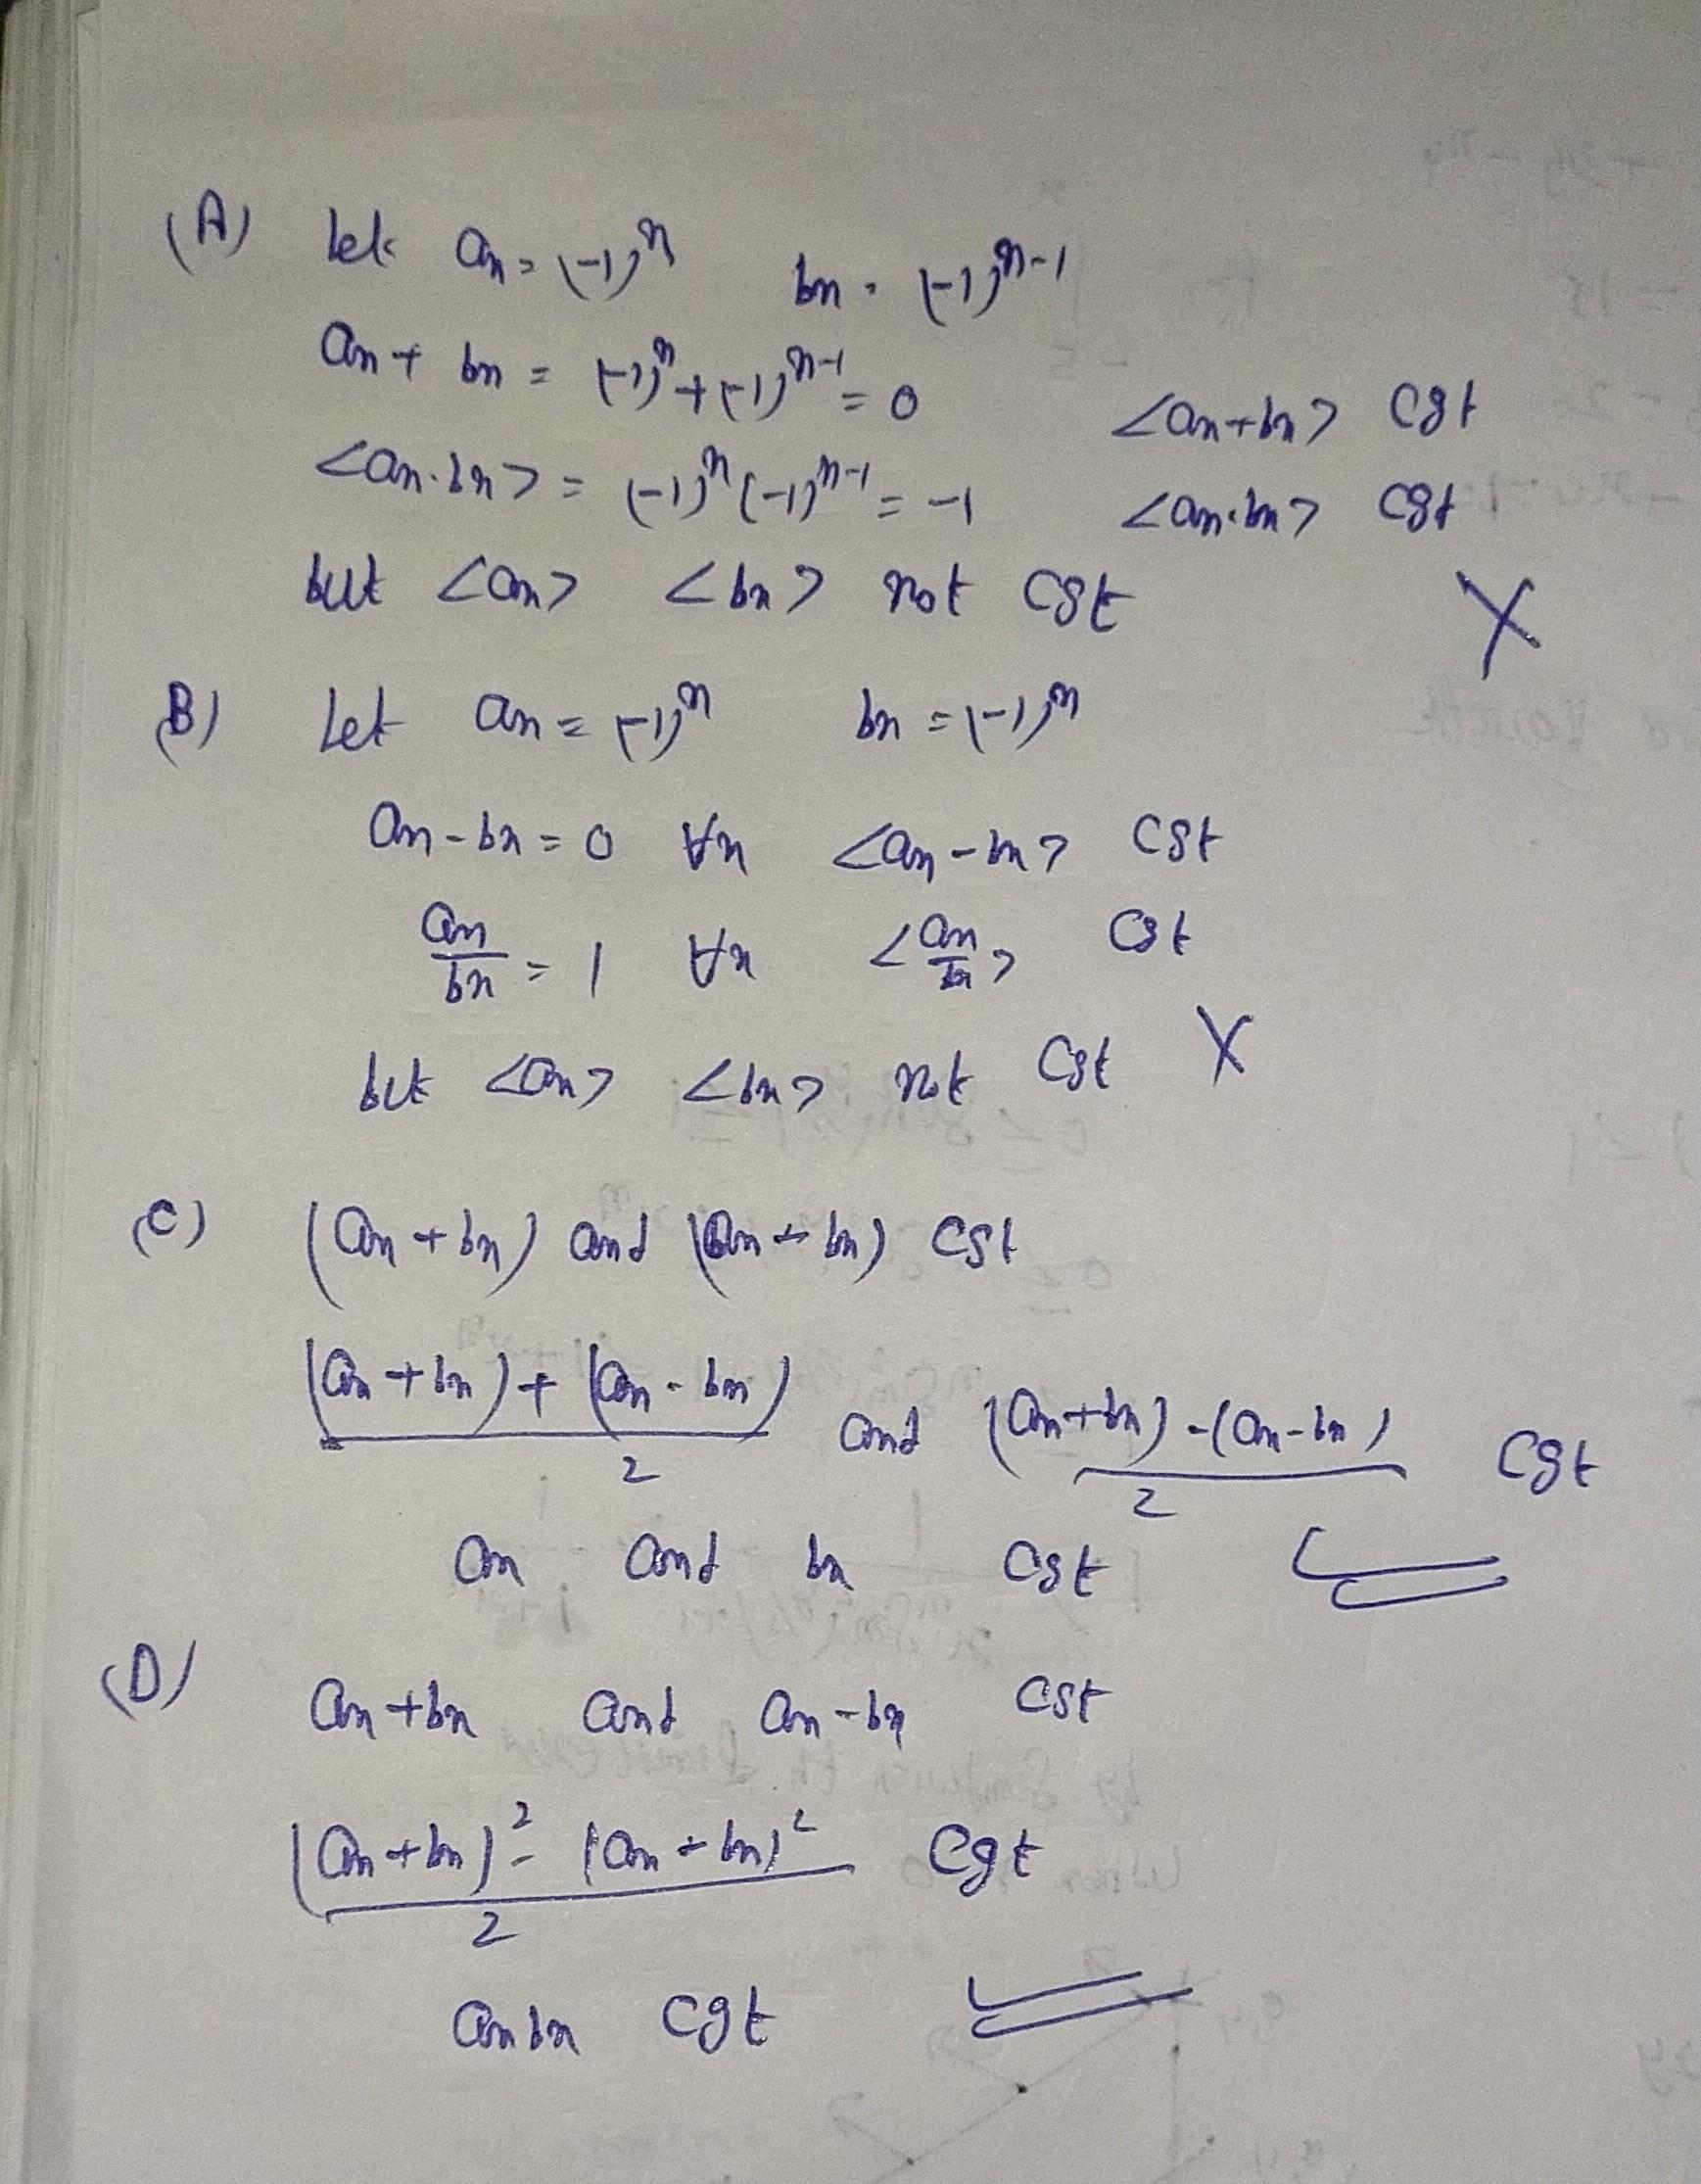 (A) Let an = (-1)^n bn = (-1)^{n-1}
an + bn = (-1)^n + (-1)^{n-1} = 0 <an+bn> cgt
<an.bn> = (-1)^n (-1)^{n-1} = -1 <an.bn> cgt
but <an> <bn> not cgt X
(B) Let an = (-1)^n bn = (-1)^n
an - bn = 0 ∀n <an - bn> cgt
an/bn = 1 ∀n <an/bn> cgt
but <an> <bn> not cgt X
(C) (an + bn) and (an - bn) cgt
((an + bn) + (an - bn))/2 and ((an+bn) - (an-bn))/2 cgt
an and bn cgt
(D) an + bn and an - bn cgt
((an + bn)^2 - (an - bn)^2)/2 cgt
an bn cgt